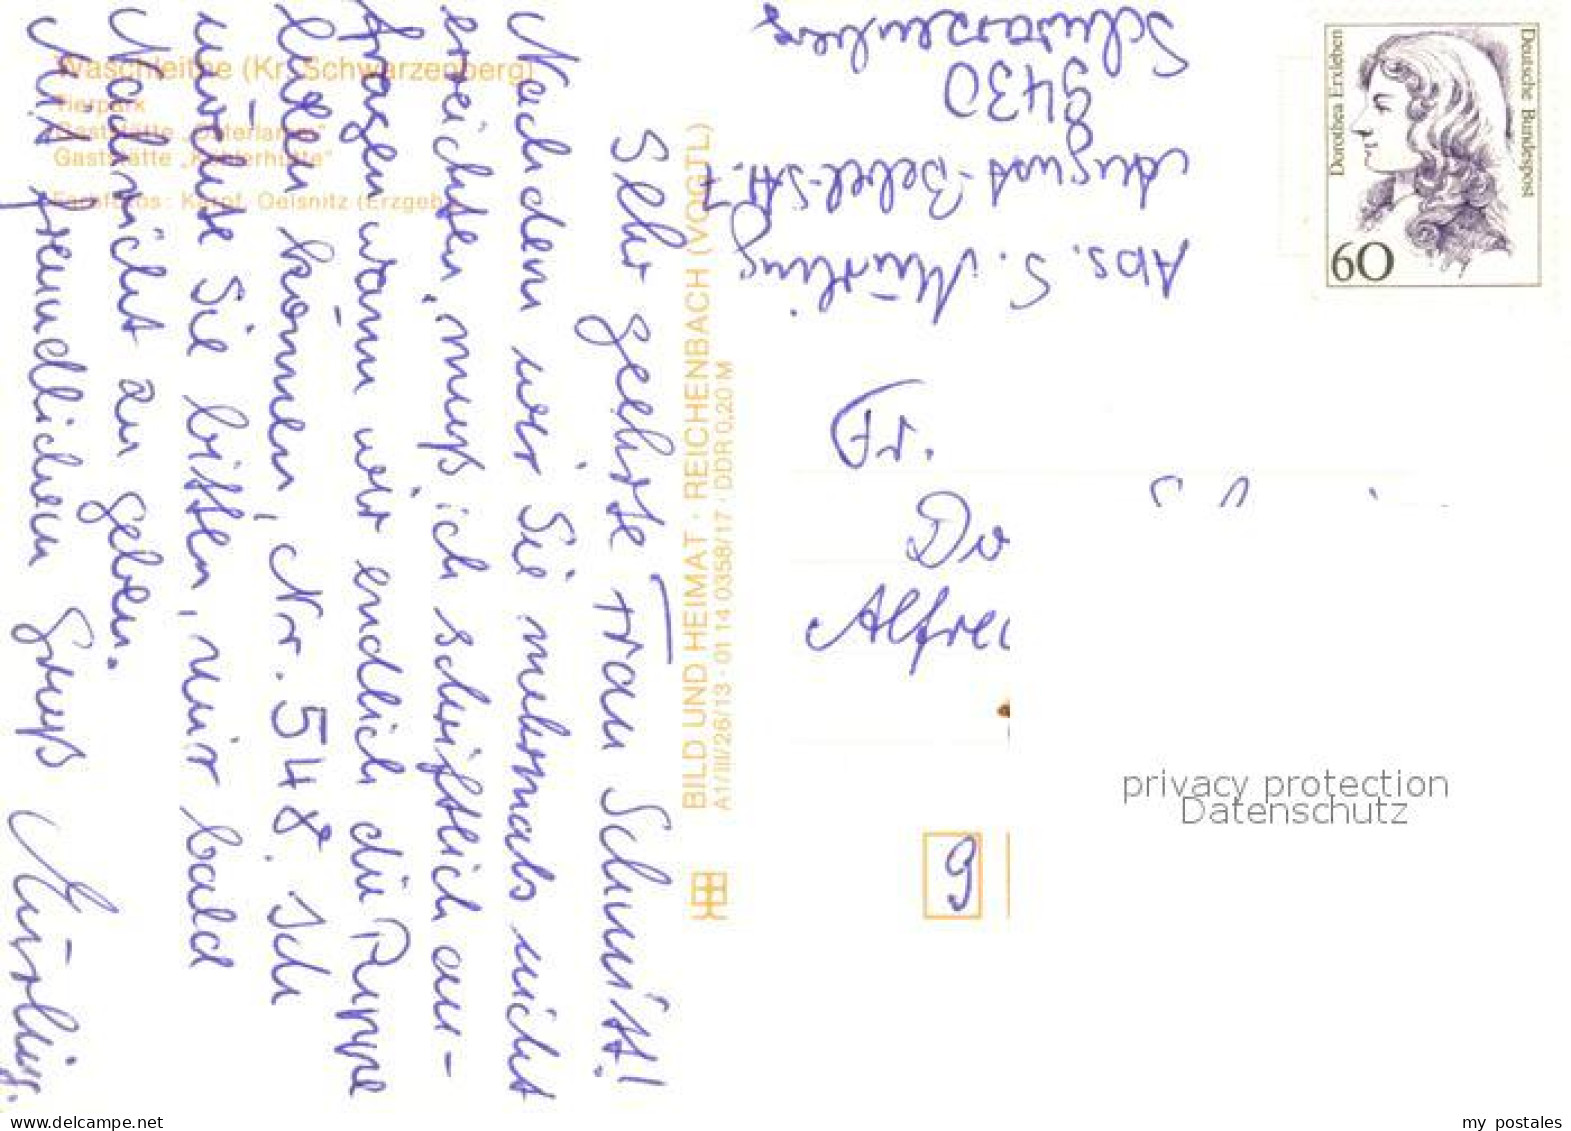 Waschleithe (Kr. Schwarzenberg)
Tierpark
Gaststätte „Osterlamm"
Gaststätte „Köhlerhütte"
Farbfotos: Karpf, Oelsnitz (Erzgeb.)
Sehr geehrte Frau Schmitt!
Nachdem wir Sie mehrmals nicht
ereichten, muß ich schriftlich an-
fragen wann wir endlich die Puppe
holen können, Nr. 548. Ich
würde Sie bitten, mir bald
Nachricht zu geben.
Mit freundlichem Gruß
BILD UND HEIMAT · REICHENBACH (VOGTL)
A1/III/26/13 · 01 14 0358/17 · DDR 0,20 M
Abs. S.
August-Bebel-Str. 7
9430
Schwarzenberg
Deutsche Bundespost
Dorothea Erxleben
60
Fr.
9
privacy protection
Datenschutz
my postales
www.delcampe.net